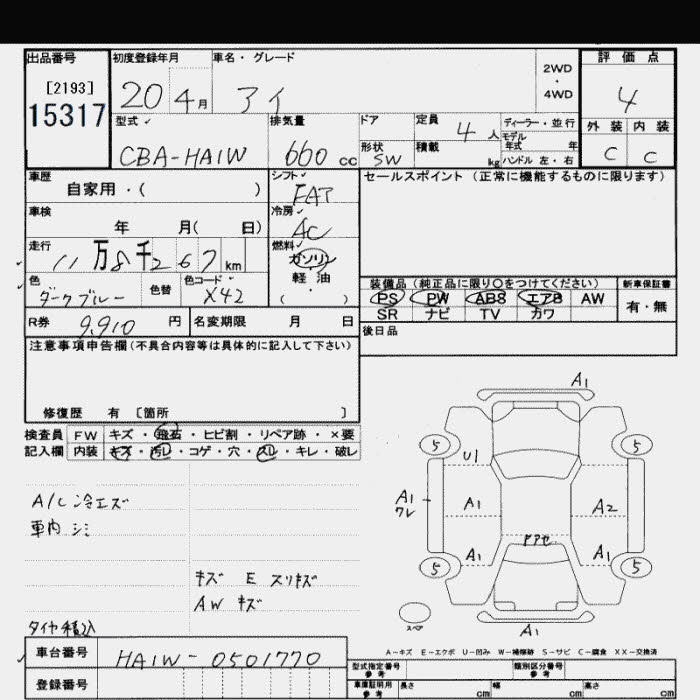 出品番号 初度登録年月 車名・グレード 2WD・4WD 評価点
[2193] 20 4月 アイ 4
15317
型式 排気量 ドア 定員 4人 ディーラー・並行 外装 内装
モデル年式 年
CBA-HA1W 660cc 形状 SW 積載 kg ハンドル 左・右 C C
車歴 シフト FAT セールスポイント (正常に機能するものに限ります)
自家用・( )
車検 冷房 AC
年 月( 日)
走行 燃料
11万8千267km ガソリン
軽・油
( )
色 ダークブルー 色替 色コード X42
装備品(純正品に限り○をつけてください) 新車保証書
PS PW ABS エアB AW 有・無
SR ナビ TV カワ
R券 9,910円 名変期限 月 日 後日品
注意事項申告欄(不具合内容等は具体的に記入して下さい)
修復歴 有 [箇所 ]
検査員 FW キズ・飛石・ヒビ割・リペア跡・×要
記入欄 内装 キズ・汚レ・コゲ・穴・スレ・キレ・破レ
A1
5 5
U1
A1 ワレ A1 A2
ドアセ
A1 A1
5 5
スペア
A1
A/C 冷エズ
車内 シミ
キズ E スリキズ
AW キズ
タイヤ積込
A-キズ E-エクボ U-凹み W-補修跡 S-サビ C-腐食 XX-交換済
車台番号 HA1W-0501770
登録番号
型式指定番号 参考 類別区分番号 参考
車庫証明用 参考 長さ cm 幅 cm 高さ cm